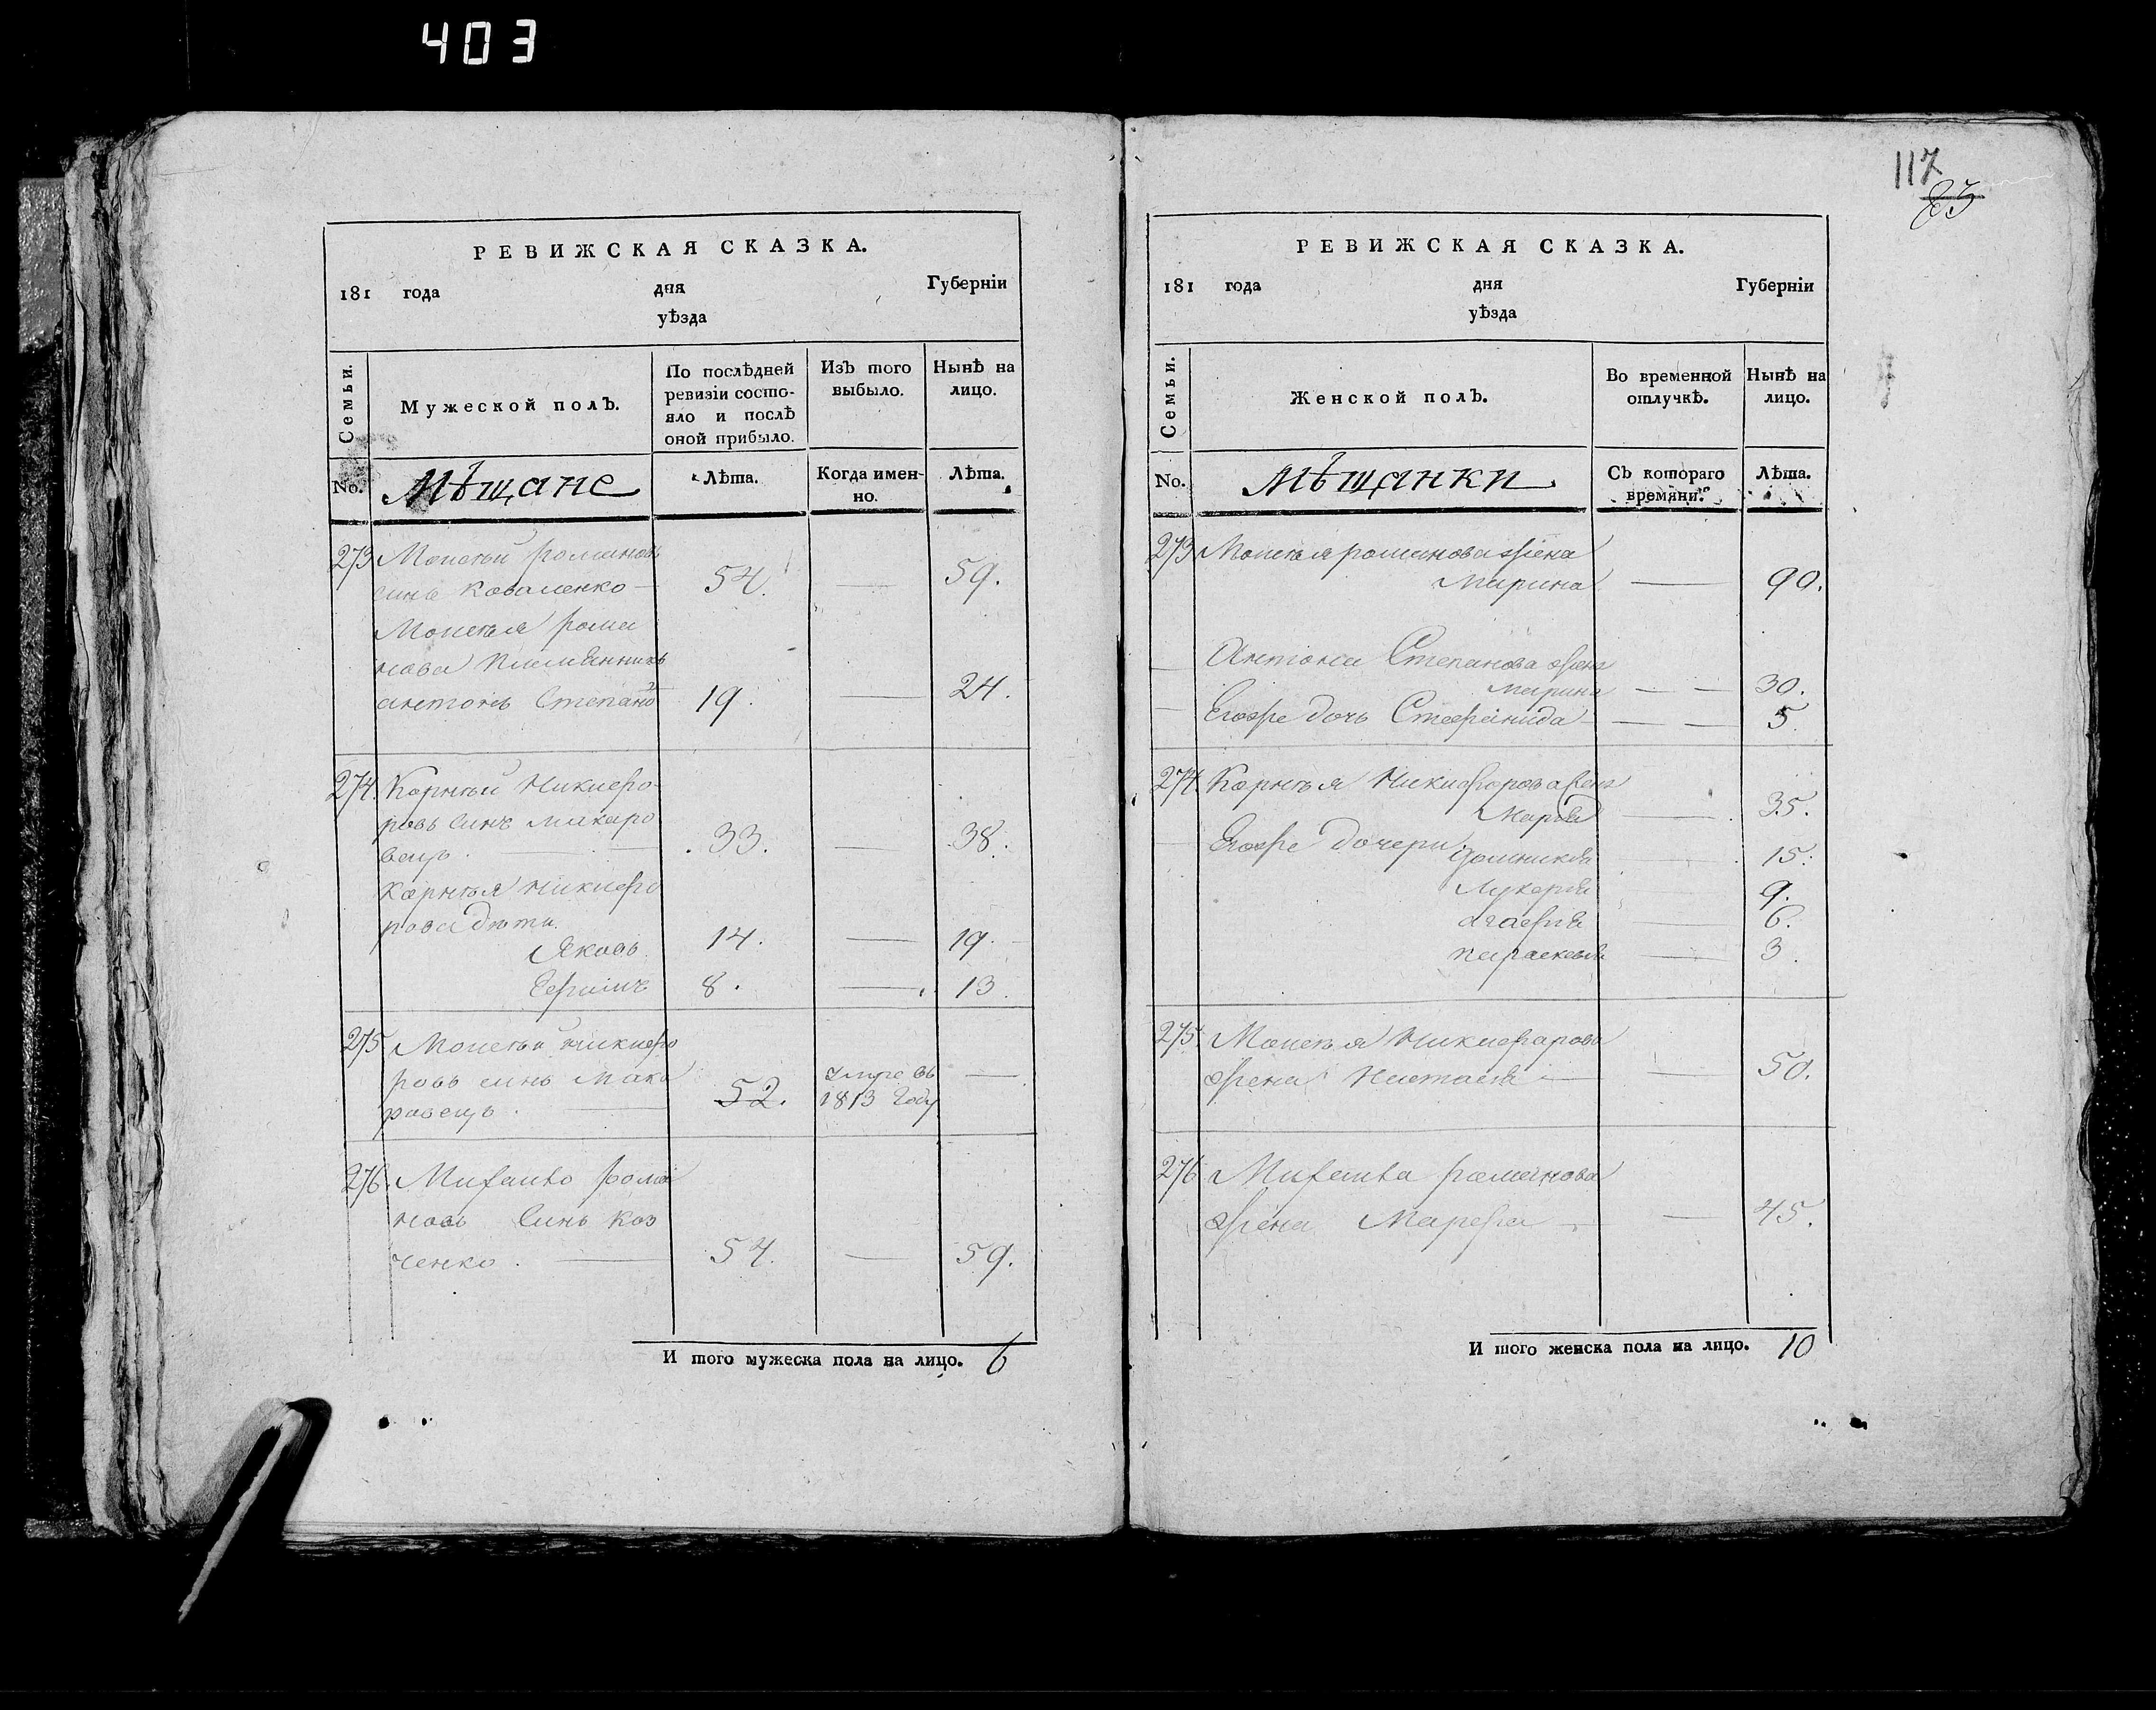 403
РЕВИЖСКАЯ СКАЗКА.
181 года дня Губерніи
уѣзда
Семьи.
Мужеской полъ.
По послѣдней ревизіи состо-
яло и послѣ
оной прибыло.
Изъ того выбыло.
Нынѣ на лицо.
No. Мѣщане Лѣта. Когда имен-
но. Лѣта.
273 Моисей романовъ
синъ Коваленко 54. — 59.
Моисея рома
нова племянникъ
антонъ Степано 19. — 24.
274. Корнѣй Никифо-
ровъ Синъ Макаро
вецъ. 33. — 38.
Корнѣя Никифо
рова дѣти.
Яковъ 14. — 19.
Ефимъ 8. — 13.
275 Моисей никифо
ровъ синъ Мака
ровецъ. 52. умре въ
1813 Году —
276. Михайло рома
новъ Синъ Коз
ченко. 54. — 59.
И того мужеска пола на лицо. 6
117
83
РЕВИЖСКАЯ СКАЗКА.
181 года дня Губерніи
уѣзда
Семьи.
Женской полъ.
Во временной
отлучкѣ.
Нынѣ на
лицо.
No. мѣщанки Съ котораго
времяни. Лѣта.
273 Моисея романова жена
Марина — 90.
Антона Степанова жена
марина — — 30.
Егоже дочь Стефанида — — 5.
274 Корнѣя Никифорова жена
Марія — 35.
Егоже дочери
Домникія 15.
Лукерія 9.
агафія — 6.
параскевія — 3.
275. Моисея Никифарова
жена Настасія — 50.
276 Михайла романова
жена Марфа — 45.
И того женска пола на лицо. 10